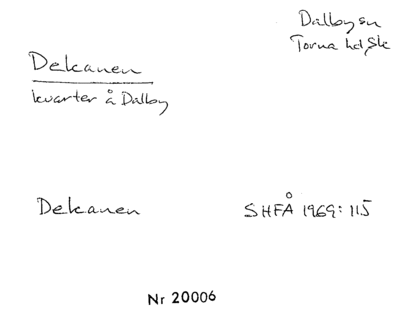 Dalby sn
Torna hd, Sk
Dekanen
kvarter å Dalby
Dekanen SHFÅ 1969: 115
Nr 20006